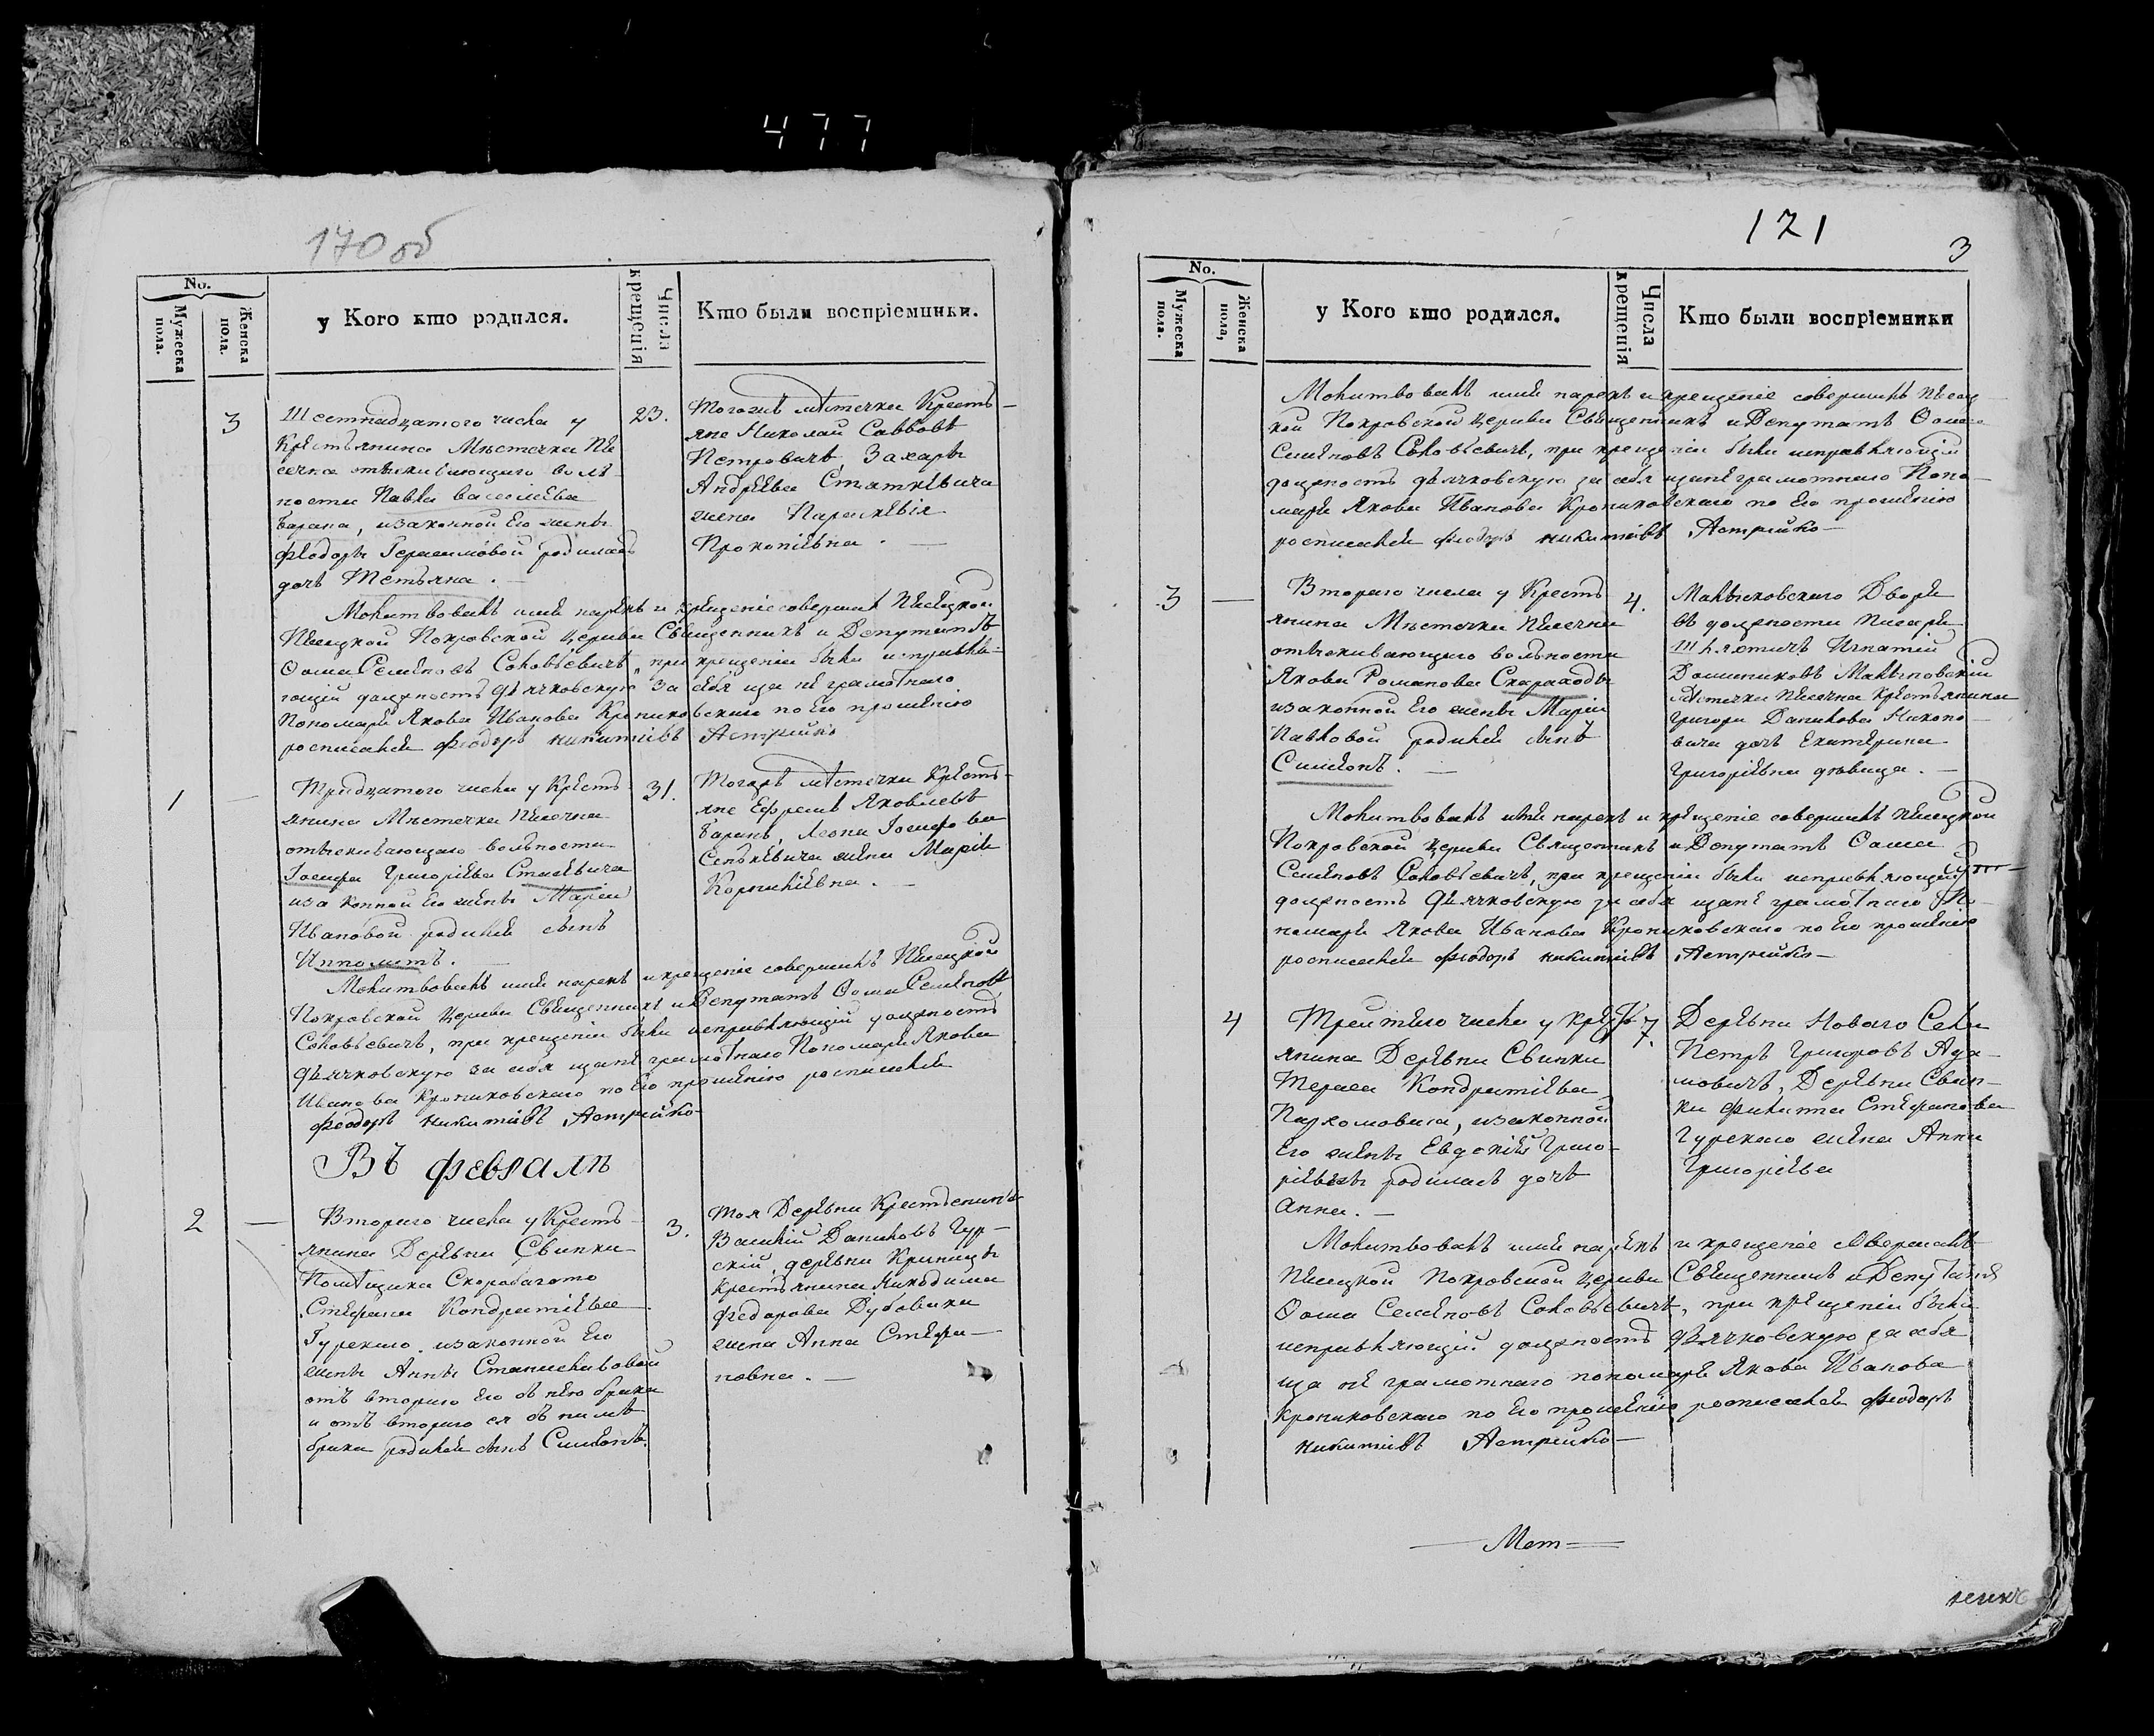 477
170 об
No.
Мужеска пола.
Женска пола.
у Кого кто родился.
Числа крещенія
Кто были воспріемники.
3
Шестнадцатого числа у
Крестьянина Мѣстечка Пѣ
сечна отыскивающаго воль-
ности Павла Василіева
Барана, изаконной Его жены
Феодоры Герасимовой родилась
дочь Тетьяна.
23.
Тогожъ мѣстечка Кресть-
яне Николай Саввовъ
Петровичъ, Захары
Андрѣева Статкѣвича
жена Параскѣвія
Прокопіевна.
Молитвовалъ имя нарекъ и крещеніе совершилъ
Покровской Церкви Священникъ и Депутатъ
Ѳома Семеновъ Соловьевичъ, при крещеніи былъ исправля-
ющій должность дьячковскую за себя ща не грамотнаго
Пономаря Якова Иванова Крониковскаго по Его прошенію
росписался Феодоръ Никитинъ Астрейко
1
Тридцатого числа у Кресть
янина Мѣстечка
отыскивающаго вольности
Іосифа Григоріева Стасевича
иза конной Его жены Маріи
Ивановой родился сынъ
Ипполитъ.
31.
Тогожъ мѣстечка Кресть-
яне Ефремъ Яковлевъ
Баранъ, Леона Іосифова
Сенкѣвича жена Марія
Корниліевна.
Молитвовалъ имя нарекъ и крещеніе совершилъ
Покровской Церкви Священникъ и Депутатъ Ѳома Семеновъ
Соловьевичъ, при крещеніи былъ исправляющій должность
Дьячковскую за себя ща не грамотнаго Пономаря Якова
Иванова Крониковскаго по Его прошенію росписался
Феодоръ Никитинъ Астрейко
Въ Февралѣ
2
Втораго числа у Кресть-
янина Деревни Свинки
Помѣщика Скоробагато
Стефана Кондратіева
Гурскаго изаконной Его
жены Анны Станиславовой
отъ втораго Его съ нею брака
и отъ втораго ея съ нимъ
брака родился сынъ Симеонъ.
3.
Тоя Деревни Крестьянинъ
Василій Даниловъ Гур-
скій, деревни Криницы
крестьянина Никодима
Федорова Дубовика
жена Анна Стефа-
новна.
171
3
No.
Мужеска пола.
Женска пола,
у Кого кто родился.
Числа крещенія
Кто были воспріемники
Молитвовалъ имя нарекъ и крещеніе совершилъ
кой Покровской Церкви Священникъ и Депутатъ Ѳома
Семеновъ Соловьевичъ, при крещеніи былъ исправляющій
должность дьячковскую за себя ща не грамотнаго Поно-
маря Якова Иванова Крониковскаго по Его прошенію
росписался Феодоръ Никитинъ Астрейко
3
Втораго числа у Кресть
янина Мѣстечка
отыскивающаго вольности
Якова Романова Скараходы
изаконной Его жены Маріи
Павловой родился сынъ
Симеонъ.
4.
Двора
въ должности Писаря
Шляхтичъ Игнатій
Доминиковъ
Мѣстечка крестьянина
Григорія Данилова
вича дочь Екатерина
Григоріевна дѣвица.
Молитвовалъ имя нарекъ и крещеніе совершилъ
Покровской Церкви Священникъ и Депутатъ Ѳома
Семеновъ Соловьевичъ, при крещеніи былъ исправляющій
должность Дьячковскую за себя ща не грамотнаго По-
номаря Якова Иванова Крониковскаго по Его прошенію
росписался Феодоръ Никитинъ Астрейко
4
Третяго числа у Кресть
янина Деревни Свинки
Тараса Кондратіева
Пархомовича, изаконной
Его жены Евдокіи Григо-
ріевны родилась дочь
Анна.
7.
Деревни Новаго Села
Петръ Григоровъ Ада-
мовичъ, Деревни Свин-
ки Филиппа Стефанова
Гурскаго жена Анна
Григоріева
Молитвовалъ имя нарекъ и крещеніе совершилъ
Покровской Церкви Священникъ и Депутатъ
Ѳома Семеновъ Соловьевичъ, при крещеніи былъ
исправляющій должность Дьячковскую за себя
ща не грамотнаго пономаря Якова Иванова
Крониковскаго по Его прошенію росписался Феодоръ
Никитинъ Астрейко
Мет